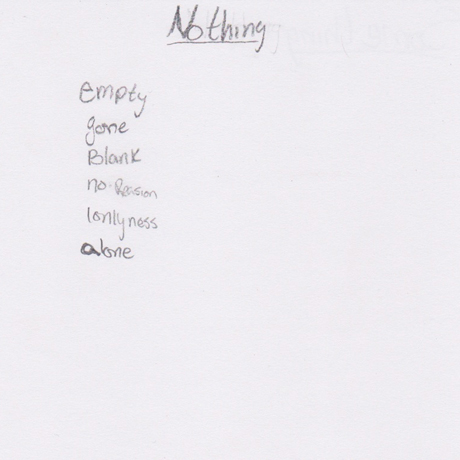 Nothing
Empty
gone
Blank
no Reason
lonlyness
alone